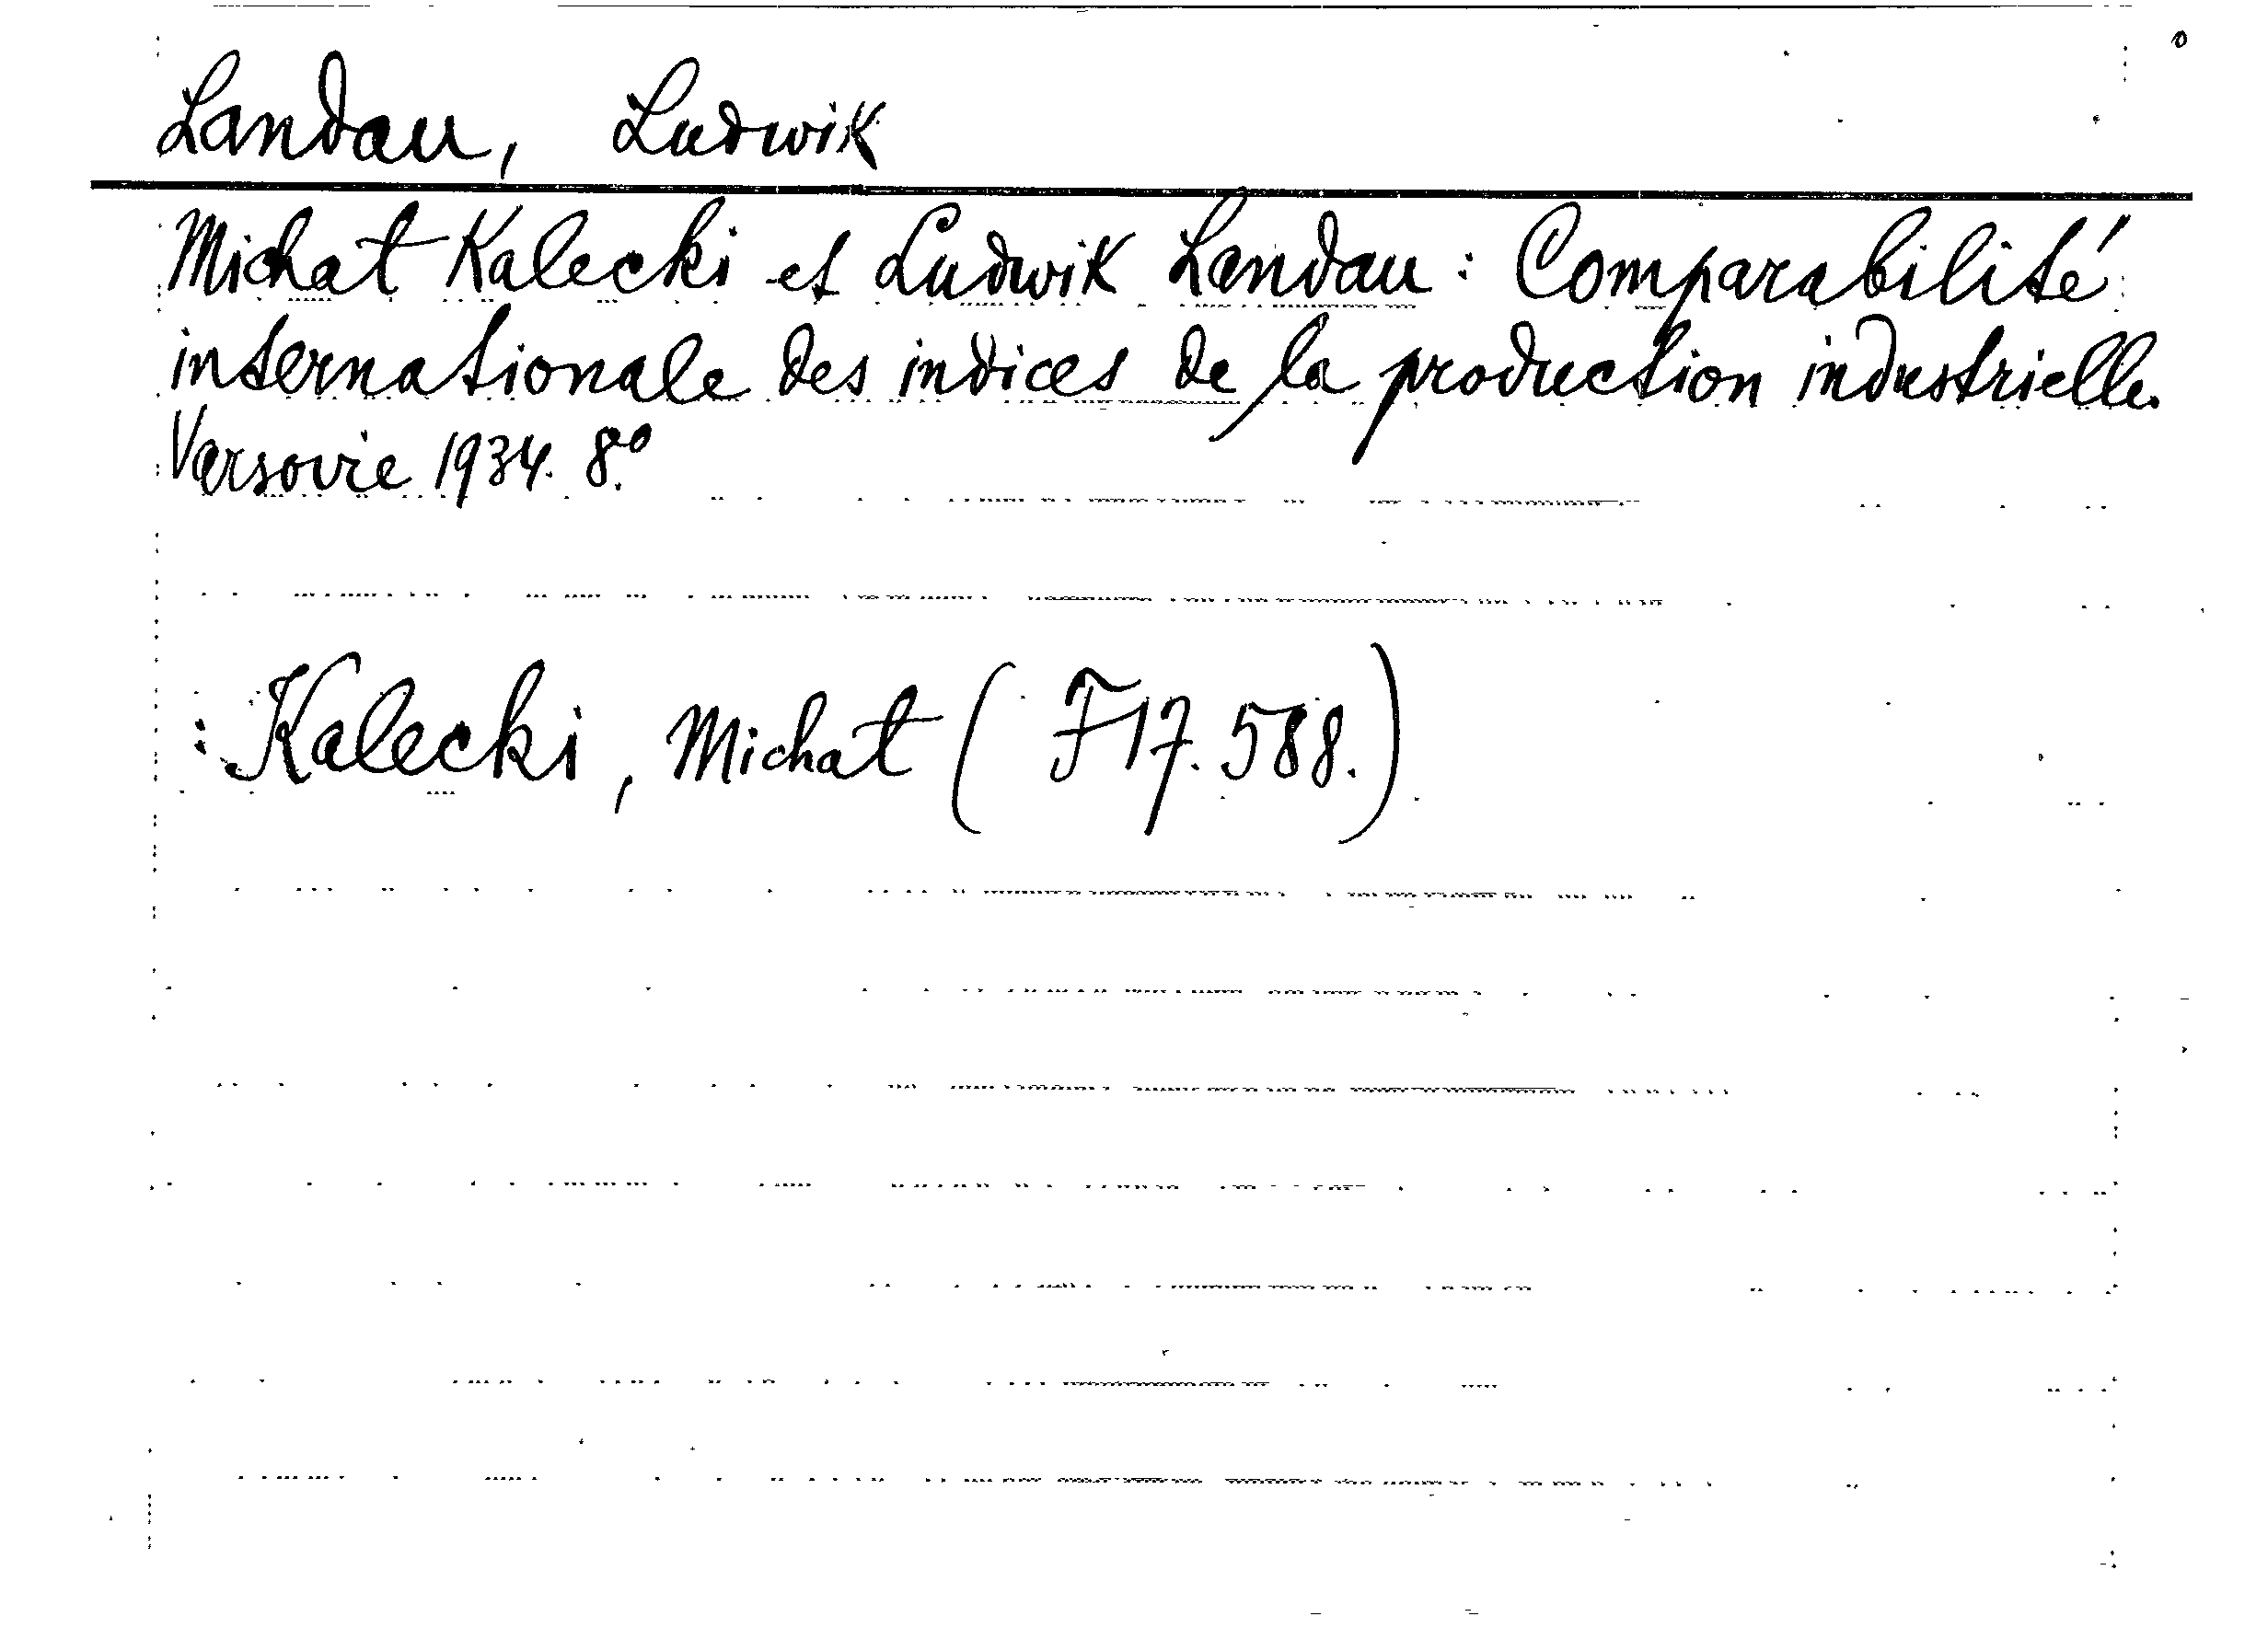 Landau, Ludwik
Michat Kalecki et Ludwik Landau: Comparabilité
internationale des indices de la production industrielle.
Varsovie 1934. 8°.
: Kalecki, Michat (F17.588.)